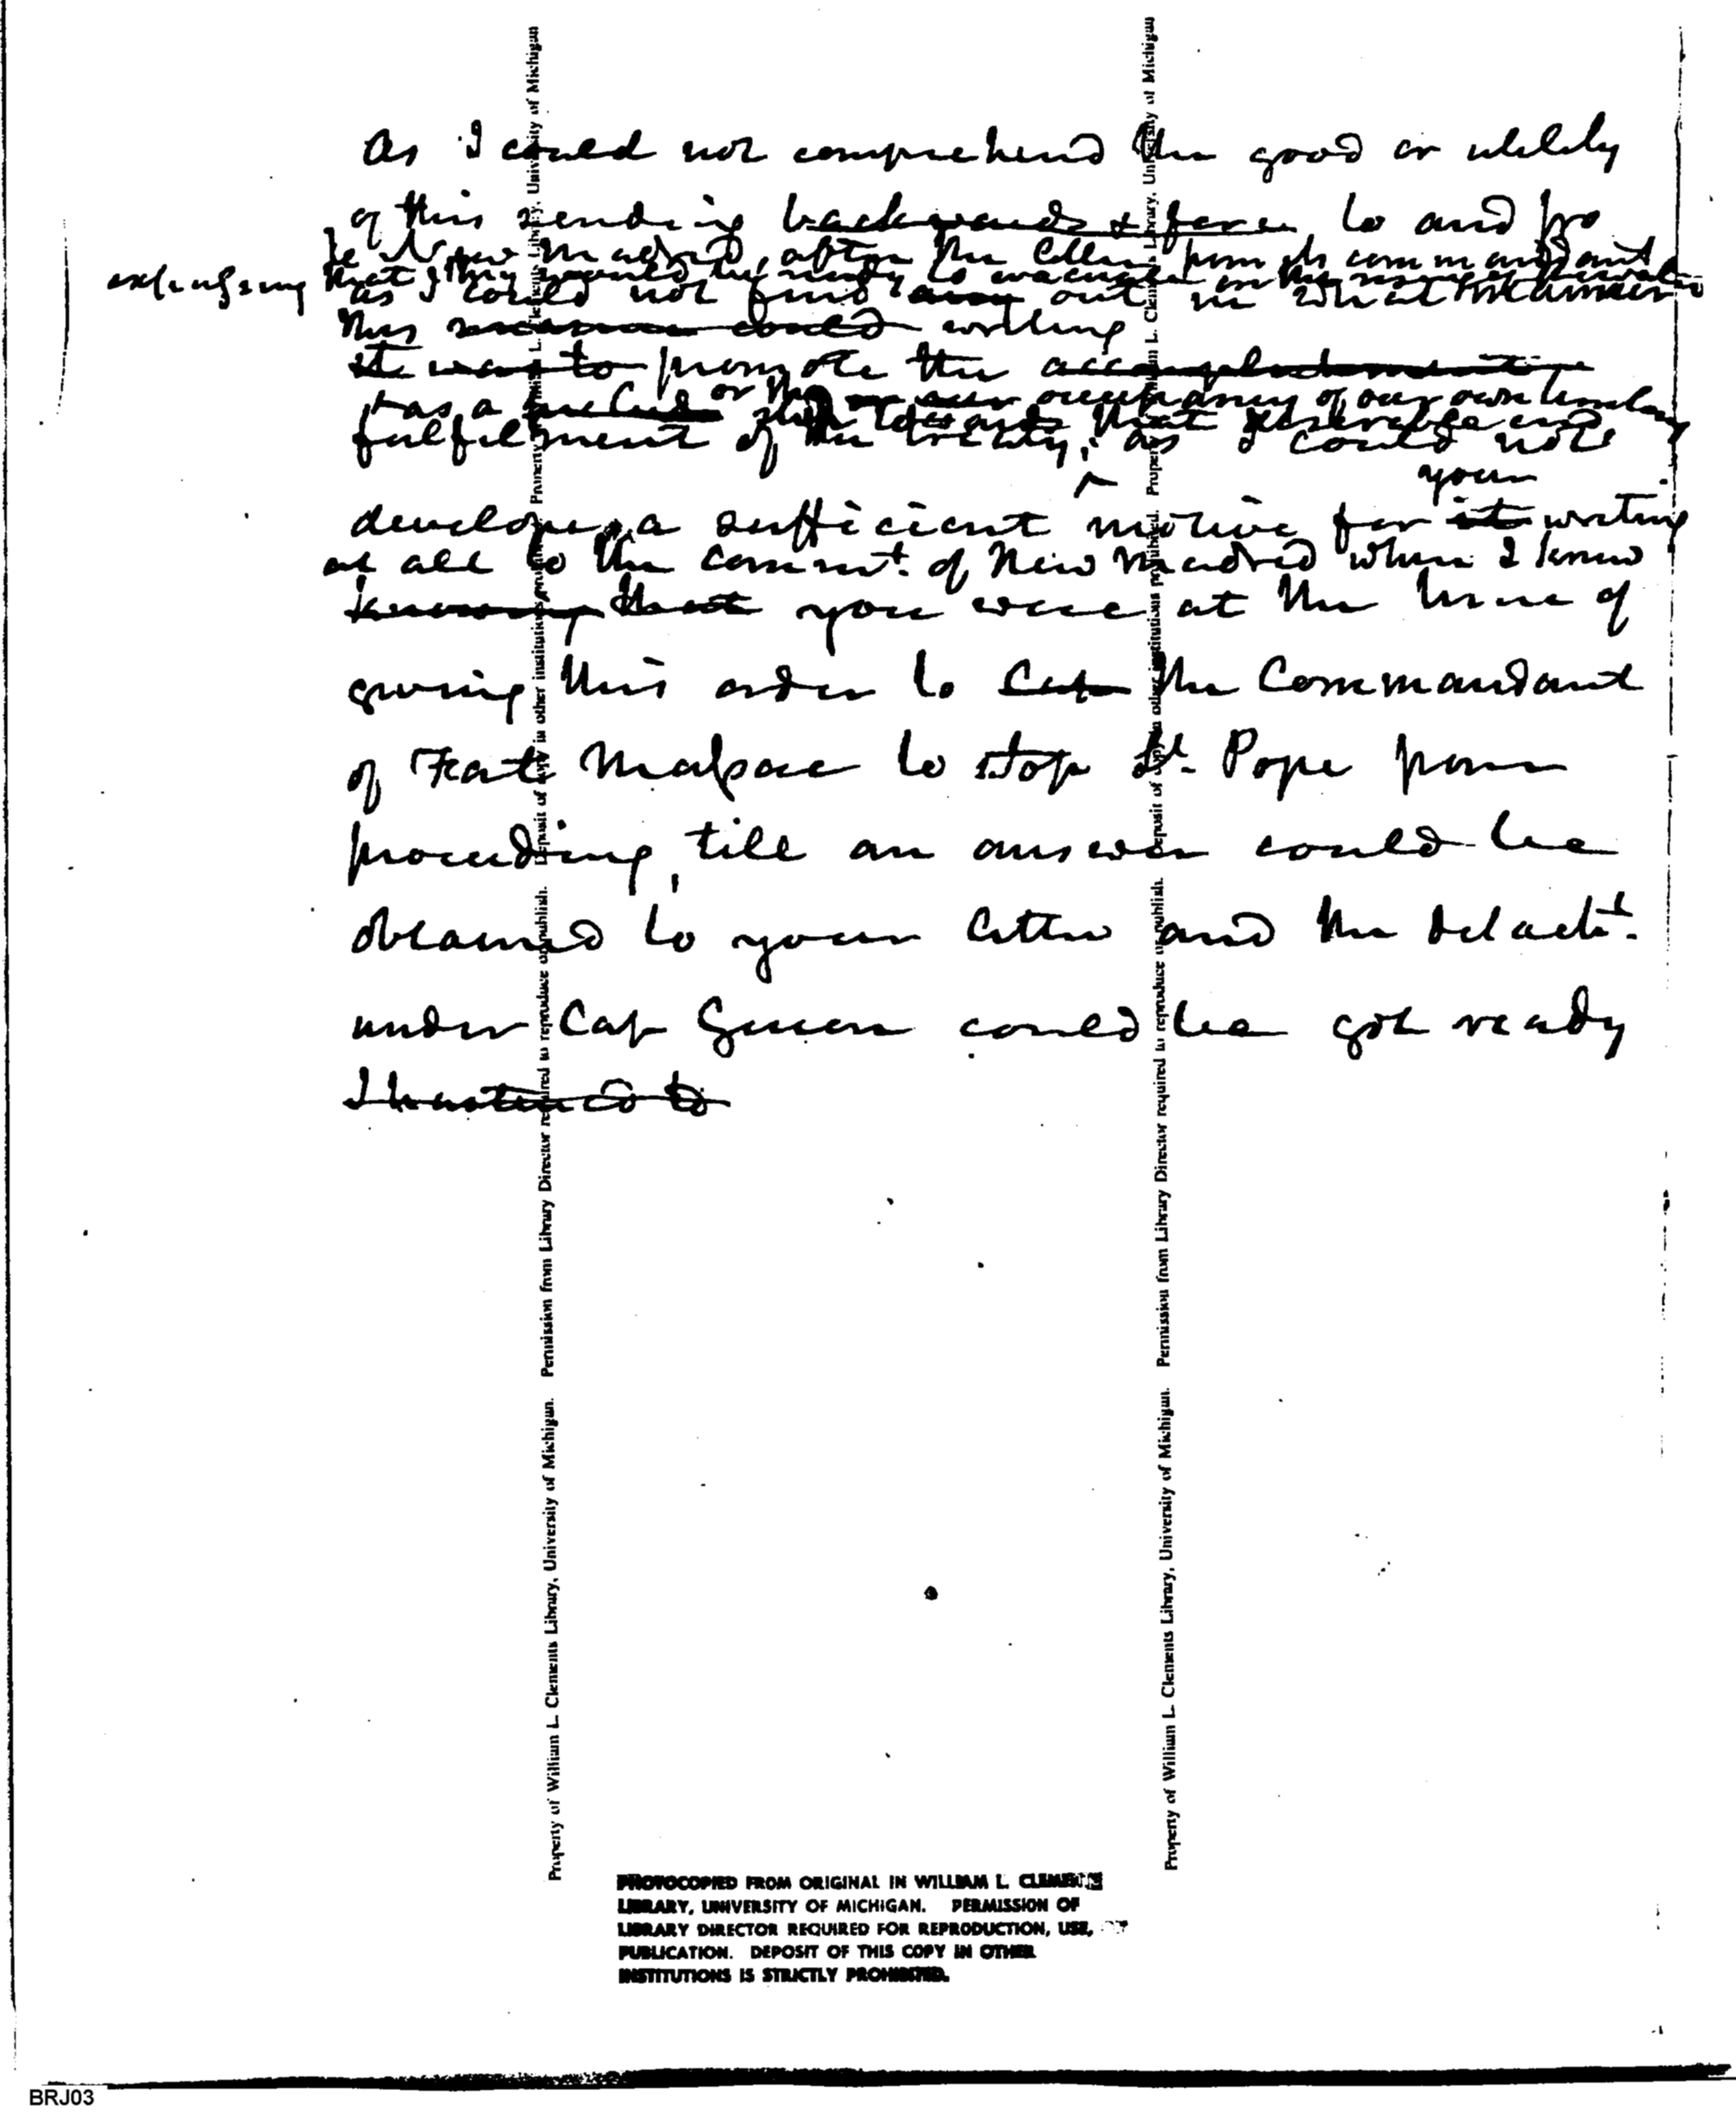 As I could not comprehend the good or utility
of this sending backwards & fore to and fro
to New Madrid, after the letter from its commandant
expressing that they would be ready to evacuate on the
as I could not find any out in what manner
this could writing
it was to promote the accomplishment
or the occupancy of our own territory
as a towards that desirable end
fulfilment of the treaty; as I could not
your
develope, a sufficient motive for it writing
at all to the commt. of New Madrid when I knew
knowing that you were at the time of
giving this order to Cap the Commandant
of Fort Massac to stop Lt. Pope from
proceeding, till an answer could be
obtained to your letter and the detacht.
under Cap Guion could be got ready
I hastened to
Property of William L. Clements Library, University of Michigan. Permission from Library Director required to reproduce or publish. Deposit of copy in other institutions prohibited. Property of William L. Clements Library, University of Michigan
Property of William L. Clements Library, University of Michigan. Permission from Library Director required to reproduce or publish. Deposit of copy in other institutions prohibited. Property of William L. Clements Library, University of Michigan
PHOTOCOPIED FROM ORIGINAL IN WILLIAM L. CLEMENTS
LIBRARY, UNIVERSITY OF MICHIGAN. PERMISSION OF
LIBRARY DIRECTOR REQUIRED FOR REPRODUCTION, USE, OR
PUBLICATION. DEPOSIT OF THIS COPY IN OTHER
INSTITUTIONS IS STRICTLY PROHIBITED.
BRJ03